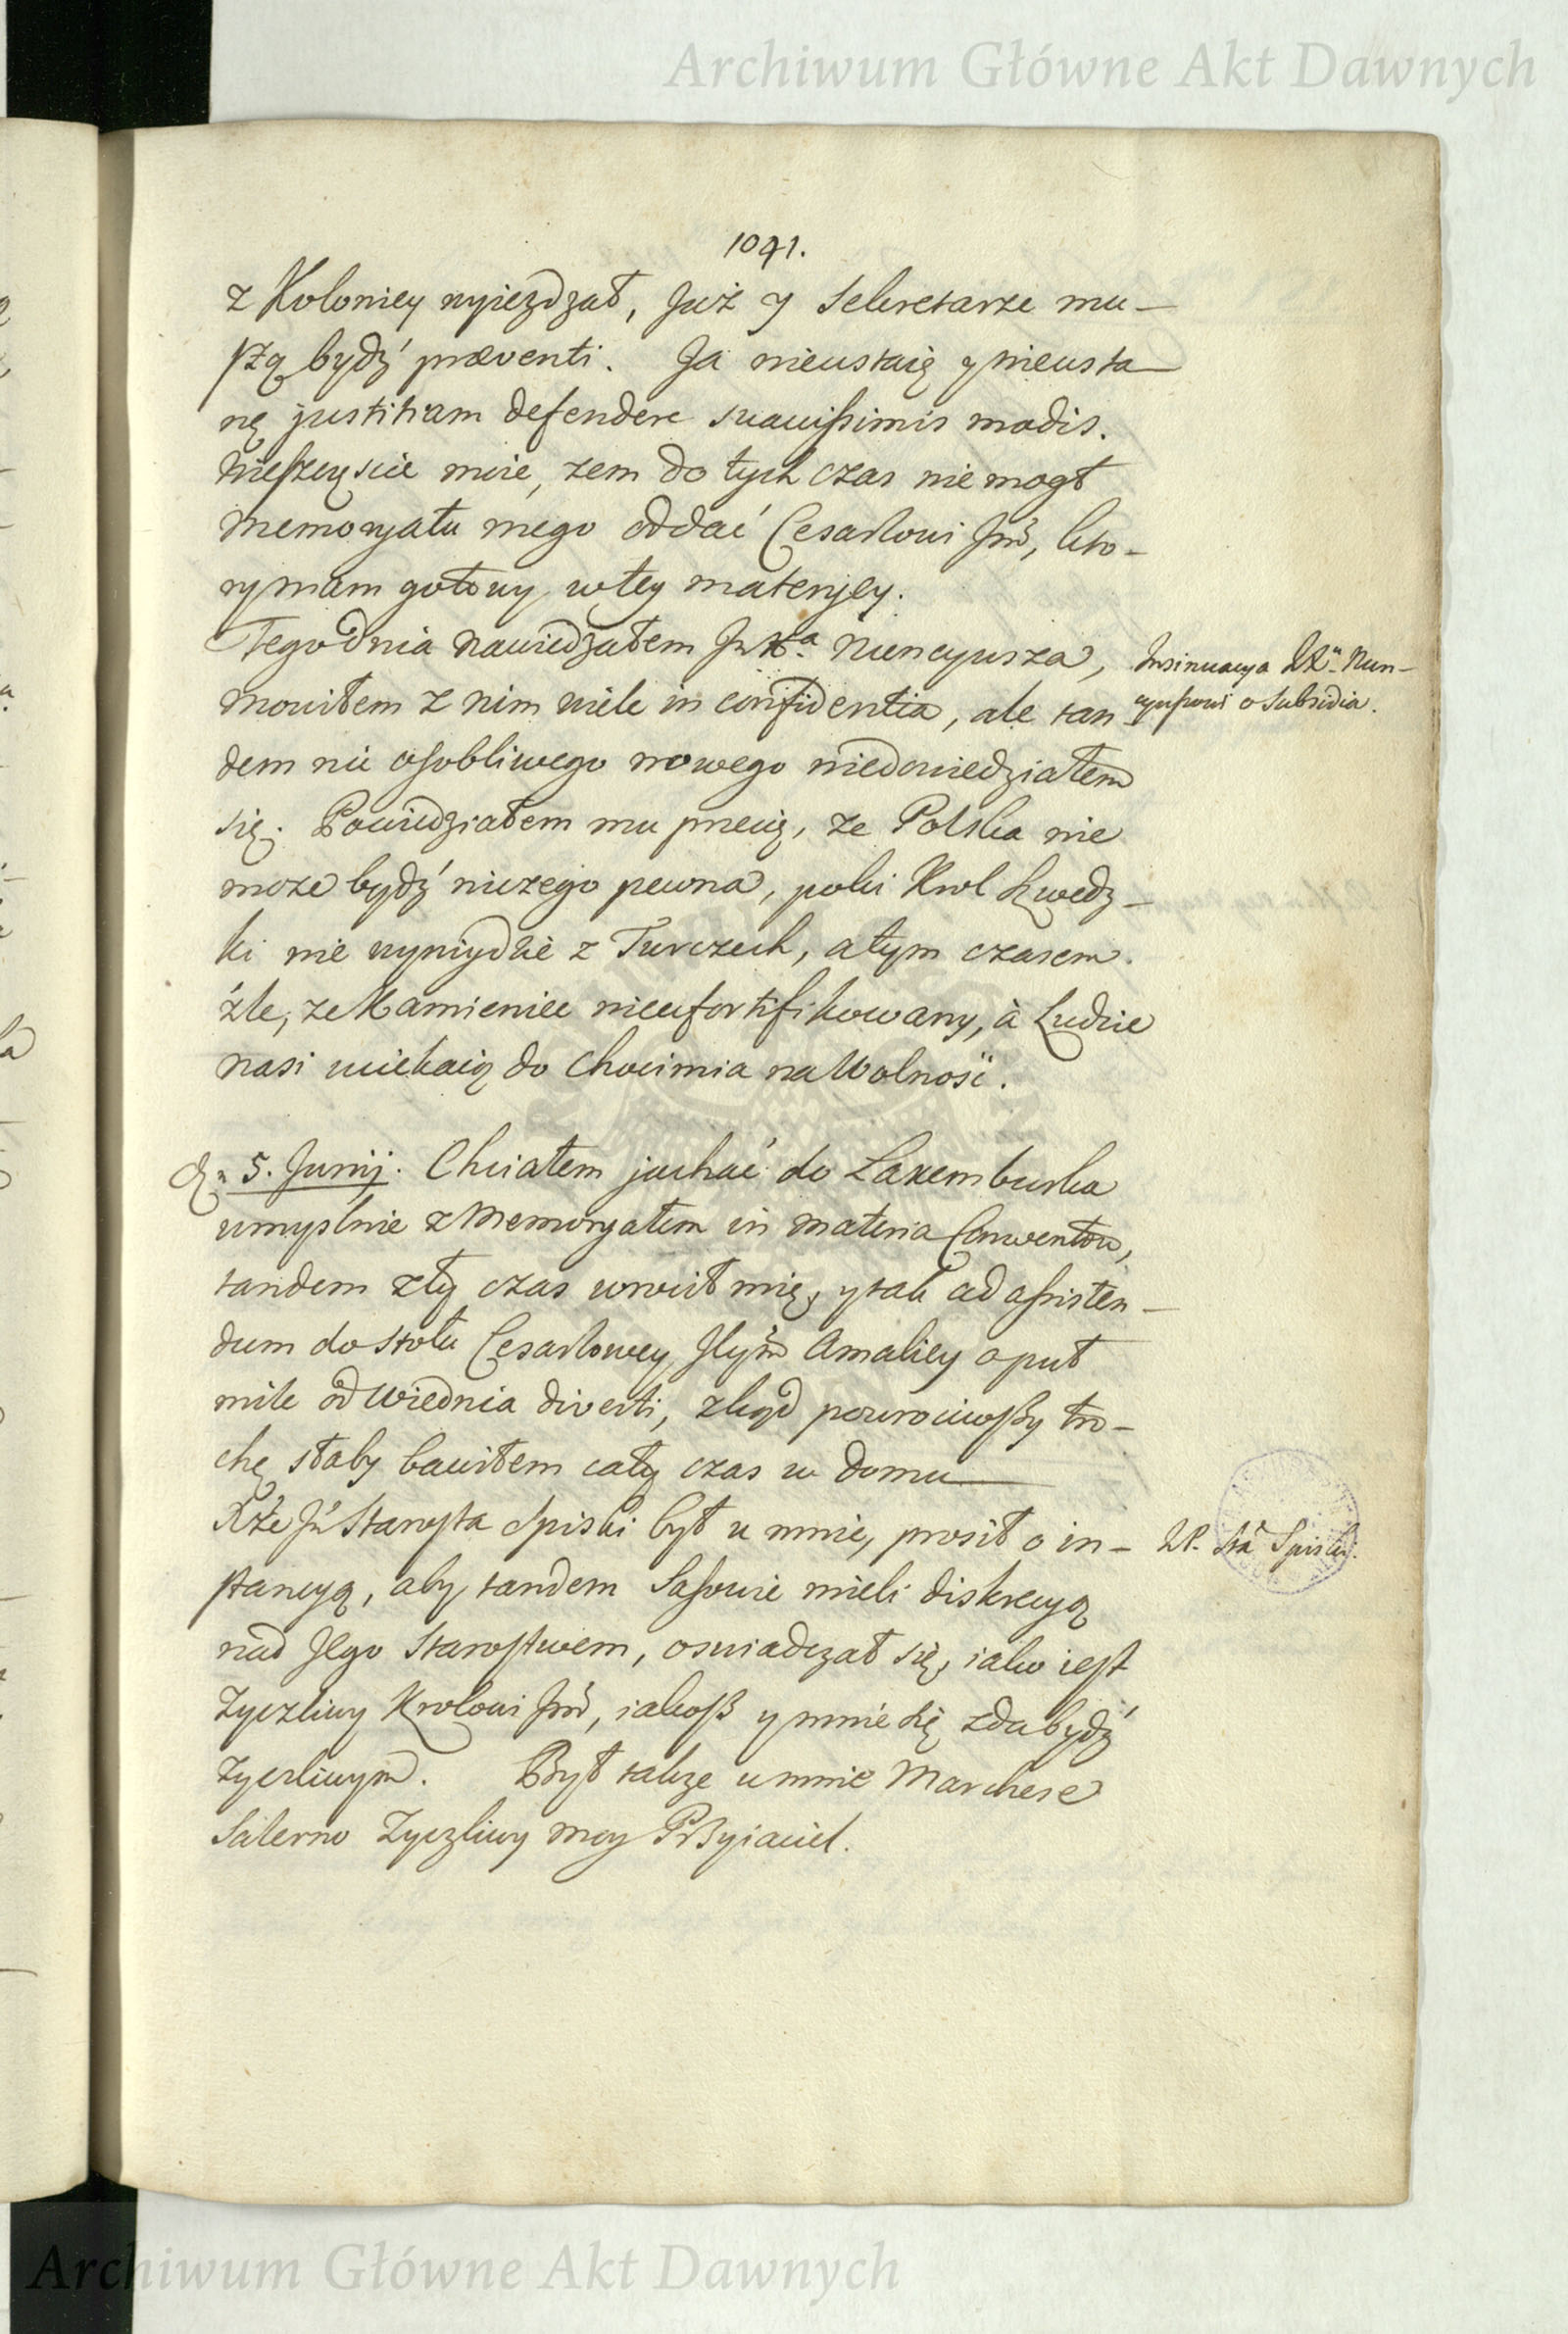 Archiwum Główne Akt Dawnych
1091.
z Koloniey wyiezdzał, Już y Sekretarze mu-
szą bydź præventi. Ja nieustaię y nieusta
nę justitiam defendere suavissimis modis.
Nieszczęscie moie, zem do tych czas nie mogł
Memoryału mego oddać Cesarzowi Jmć, kto-
ry mam gotowy w tey materyey.
Tego dnia nawiedzałem Nuncyusza,
mowiłem z nim wiele in confidentia, ale tan
dem nic osobliwego nowego niedowiedziałem
się. Powiedziałem mu przecię, ze Polska nie
moze bydź niczego pewna, poki Krol Szwedz-
ki nie wyniydzie z Turczech, a tym czasem
źle, ze Kamieniec nieufortifikowany, à Ludzie
nasi uciekaią do Chocimia na Wolnosć.
Insinuacya Nun-
cyuszowi o Subsidia.
5. Junij. Chciałem jachać do Laxemburka
umyslnie z Memoryałem in materia Conventow,
tandem zły czas wrocił mię, y tak ad assisten-
dum do stołu Cesarzowey Amaliey o puł
mile od Wiednia diverti, zkąd powrociwszy tro-
chę słaby bawiłem cały czas w domu
Xże Jmć Starosta Spiski był u mnie, prosił o in-
stancyą, aby tandem Sasowie mieli diskrecyą
nad Jego Starostwem, oswiadczał się, iako iest
Zyczliwy Krolowi Jmć, iakosz y mnie się zda bydź
Zyczliwym. Był takze u mnie Marchese
Salerno Zyczliwy moy Przyiaciel.
Spiski.
Archiwum Główne Akt Dawnych